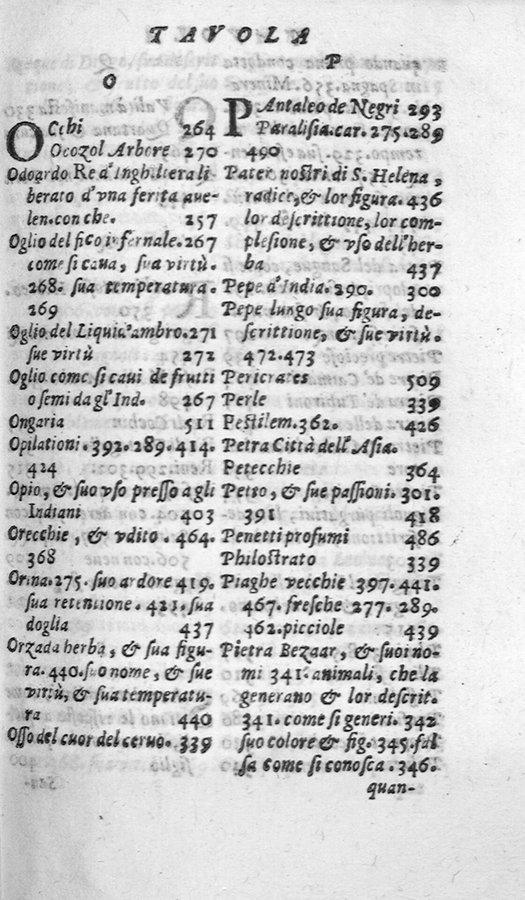 TAVOLA
O
OCchi 264
Ocozol Arbore 270
Odoardo Re d'Inghilterra li
berato d'vna ferita aue-
len. con che. 257
Oglio del fico infernale. 267
come si caua, sua virtù.
268. sua temperatura.
269
Oglio del Liquid'ambro. 271
sue virtù 272
Oglio come si caui de frutti
o semi da gl'Ind. 267
Ongaria 511
Opilationi. 392. 289. 414.
424
Opio, & suo vso presso a gli
Indiani 403
Orecchie, & vdito. 464.
368
Orina. 275. suo ardore 419.
sua retentione. 421. sua
doglia 437
Orzada herba, & sua figu-
ra. 440. suo nome, & sue
virtù, & sua temperatu-
ra 440
Osso del cuor del ceruo. 339
P
PAntaleo de Negri 293
Paralisia. car. 275. 289
490
Pater nostri di S. Helena,
radice, & lor figura. 436
lor descrittione, lor com-
plesione, & vso dell'her-
ba 437
Pepe d'India. 290. 300
Pepe lungo sua figura, de-
scrittione, & sue virtù.
472. 473
Pericrates 509
Perle 339
Pestilem. 362. 426
Petra Città dell'Asia.
Petecchie 364
Petto, & sue passioni. 301.
391 418
Penetti profumi 486
Philostrato 339
Piaghe vecchie 397. 441.
467. fresche 277. 289.
462. picciole 439
Pietra Bezaar, & suoi no-
mi 341. animali, che la
generano & lor descrit.
341. come si generi. 342
suo colore & fig. 345. fal
sa come si conosca. 346.
quan-